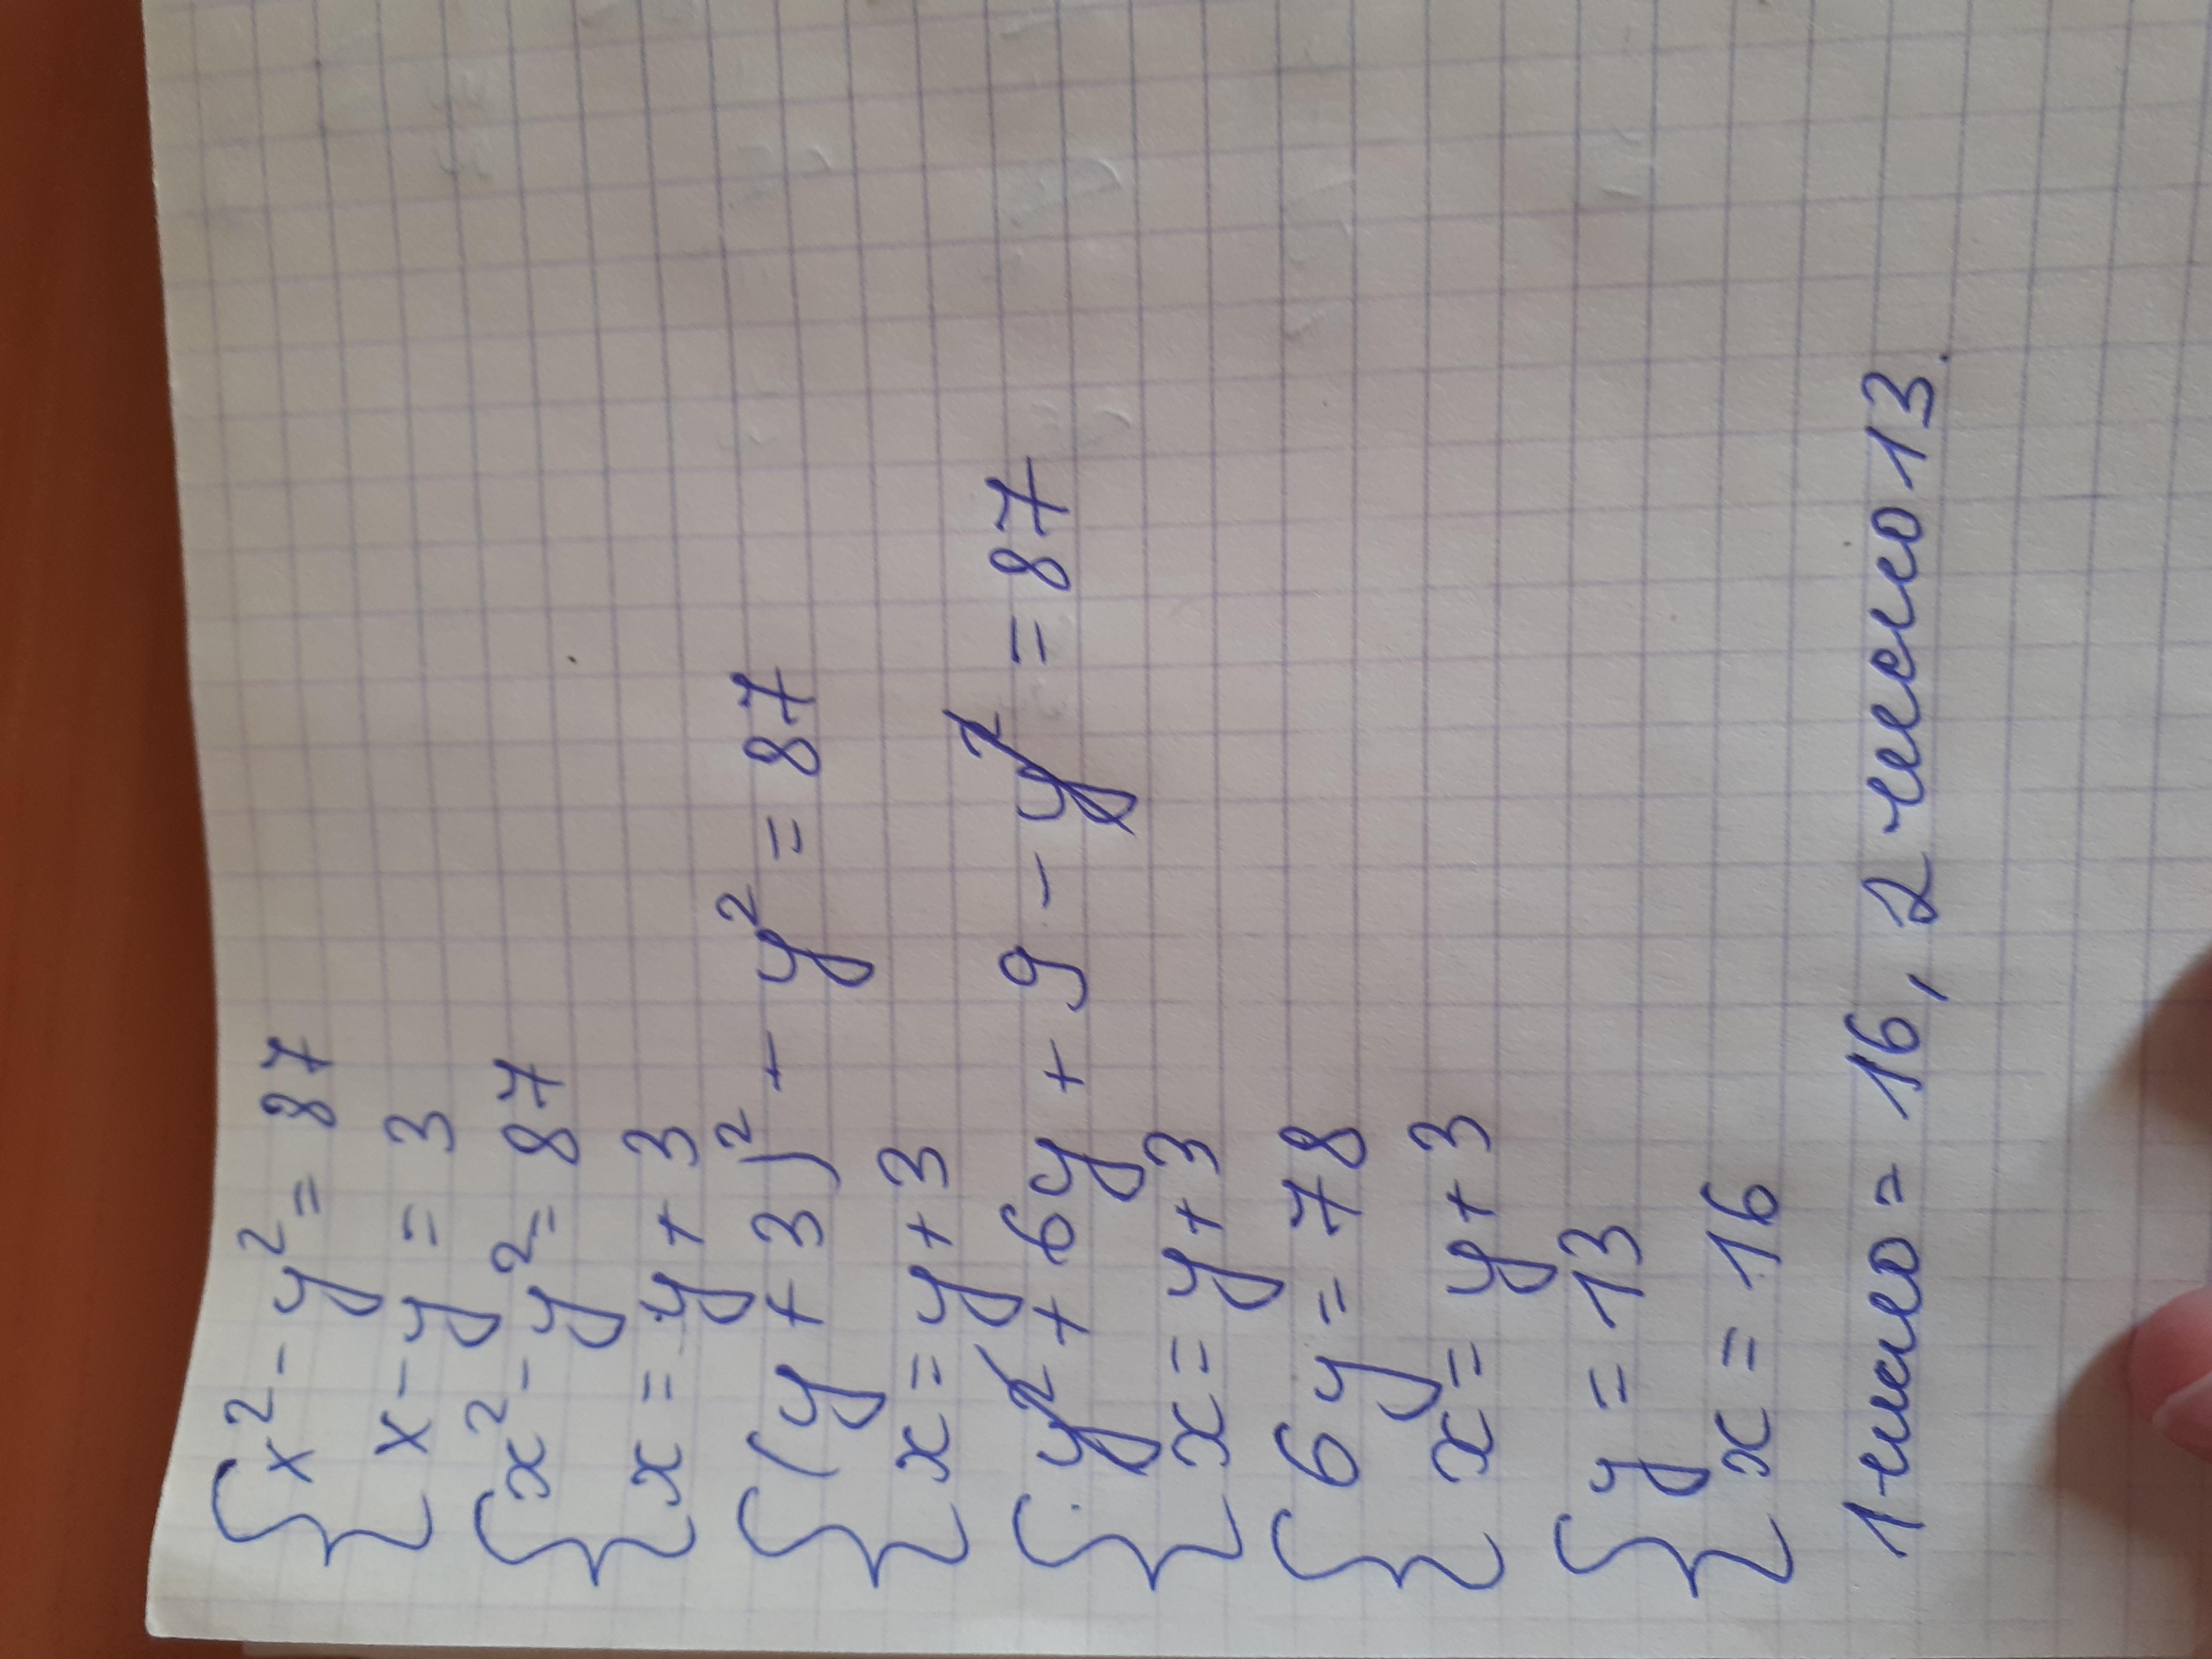 {x² - y² = 87
x - y = 3
{x² - y² = 87
x = y + 3
{(y + 3)² - y² = 87
x = y + 3
{y² + 6y + 9 - y² = 87
x = y + 3
{6y = 78
x = y + 3
{y = 13
x = 16
1 число = 16, 2 число 13.